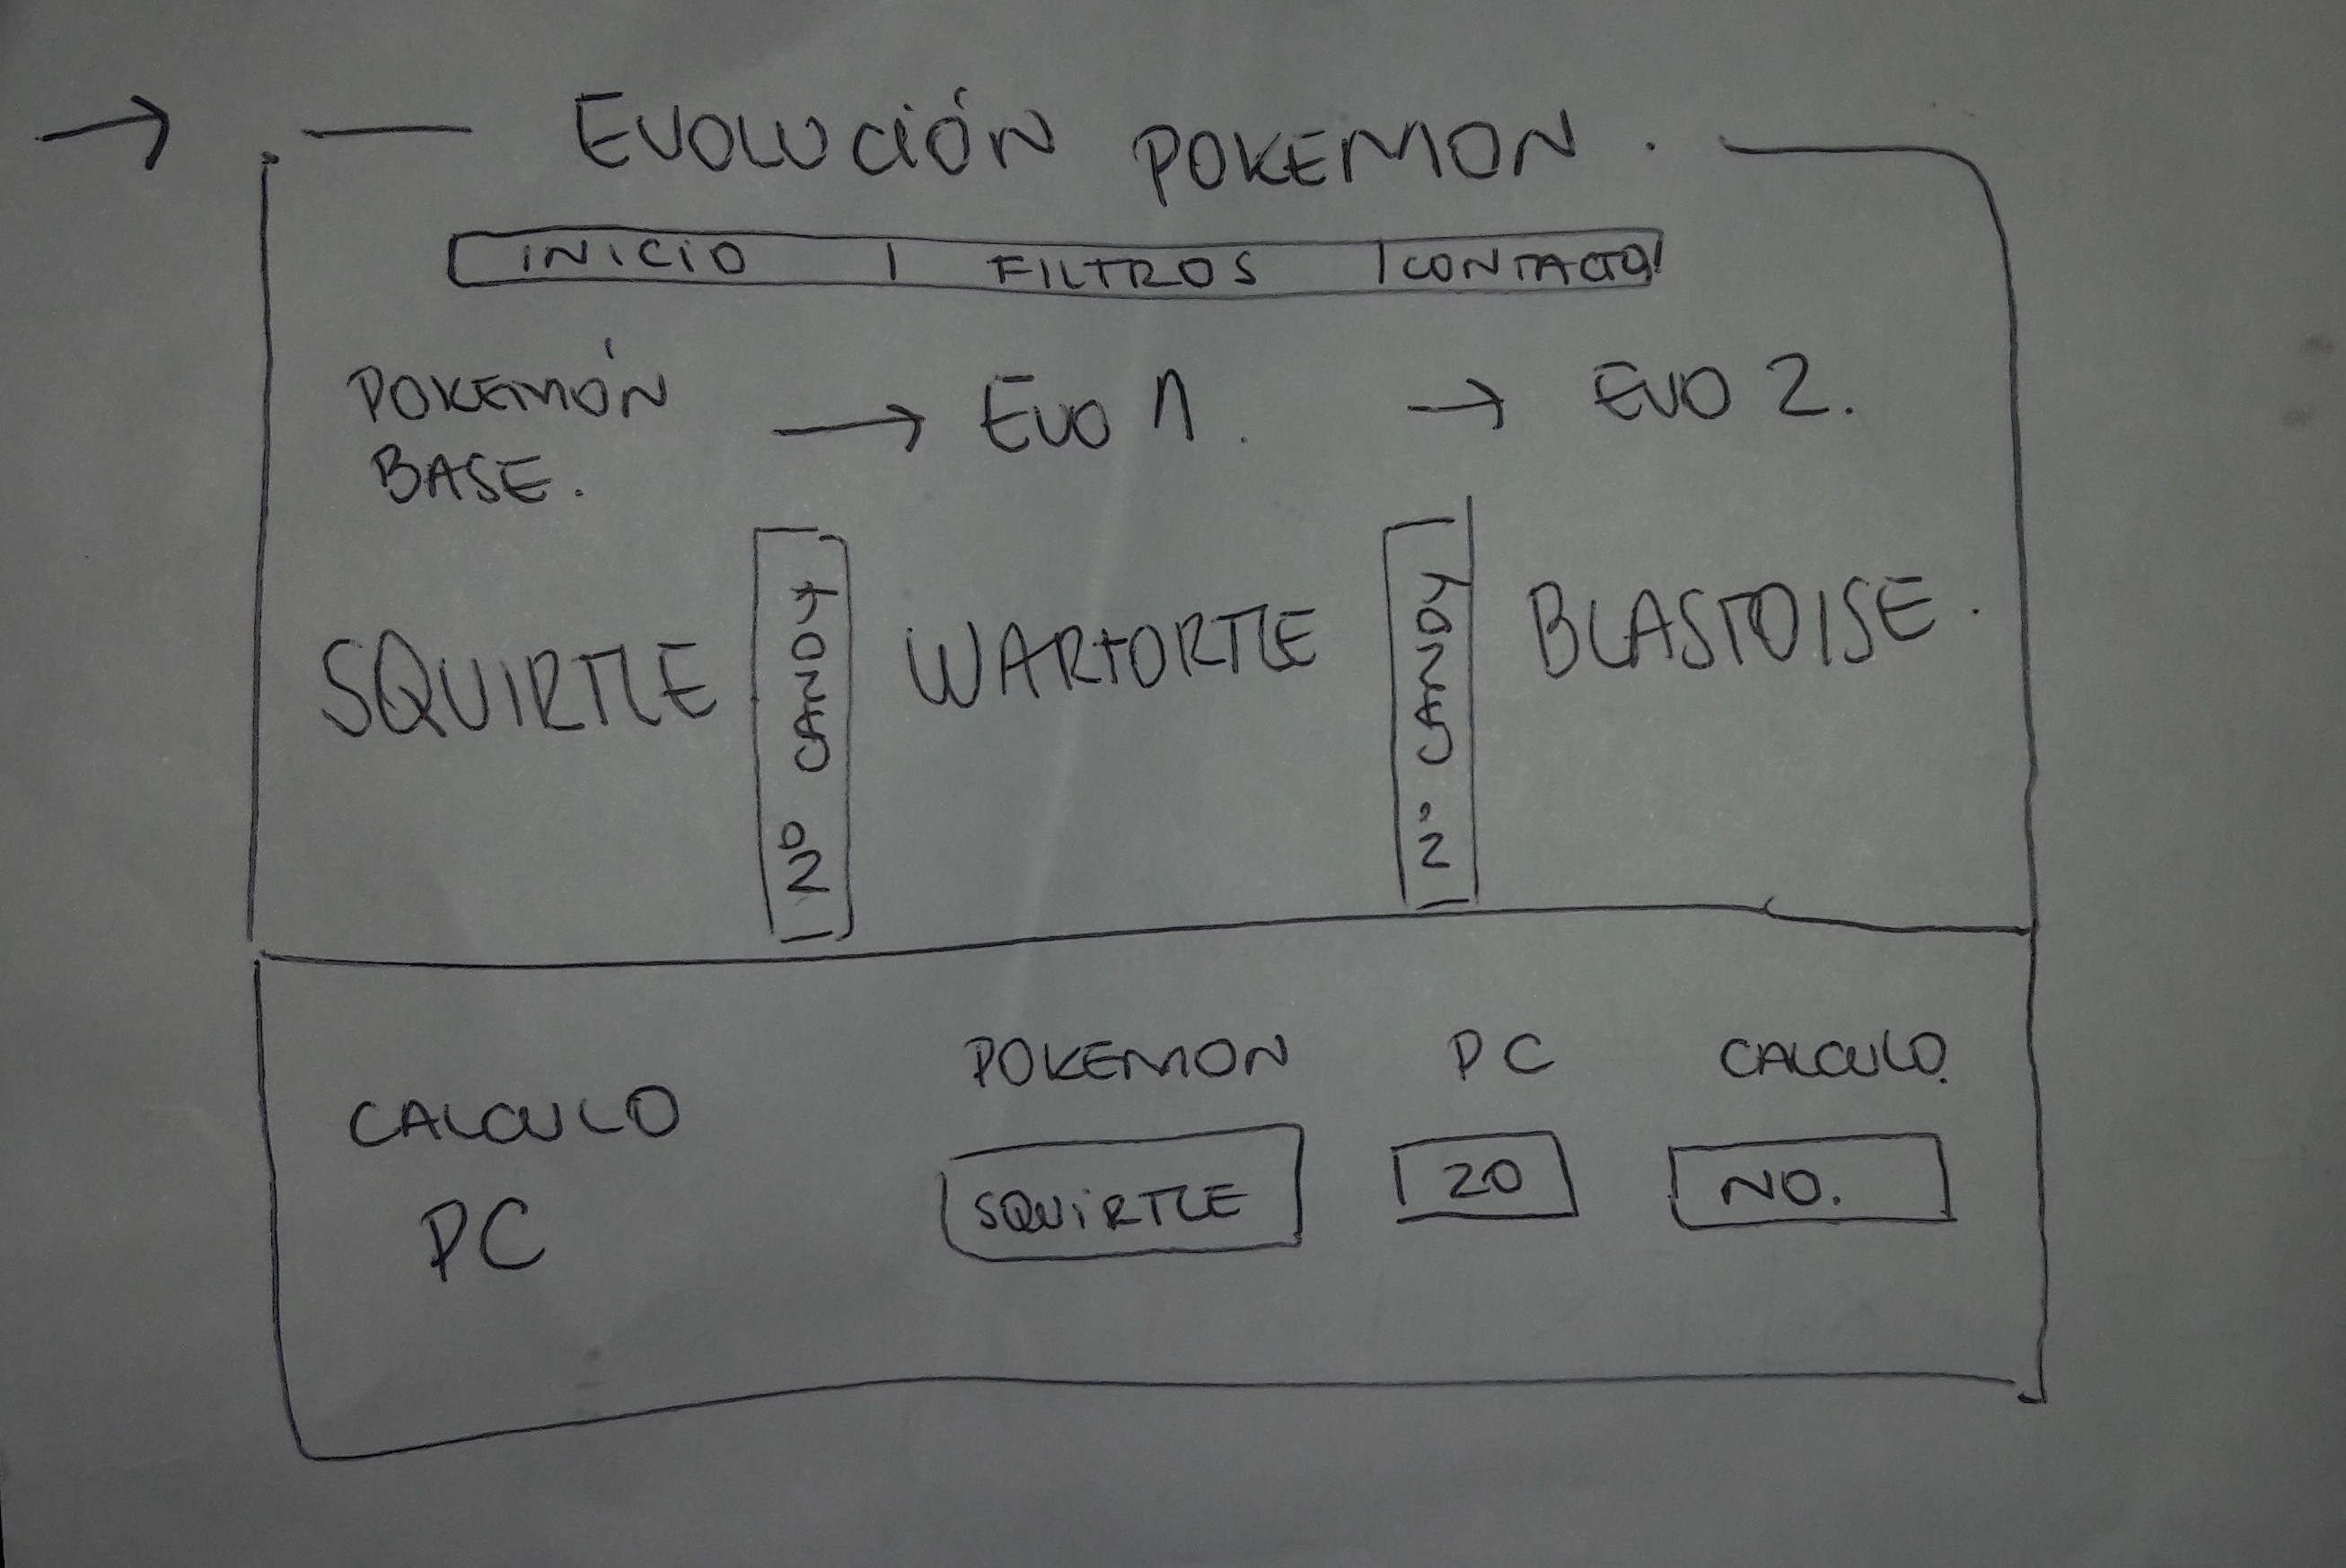 EVOLUCIÓN POKEMON.
INICIO | FILTROS | CONTACTO
POKEMÓN BASE. → EVO 1. → EVO 2.
SQUIRTLE
Nº CANDY
WARTORTLE
Nº CANDY
BLASTOISE.
CALCULO
PC
POKEMON PC CALCULO.
SQUIRTLE 20 NO.